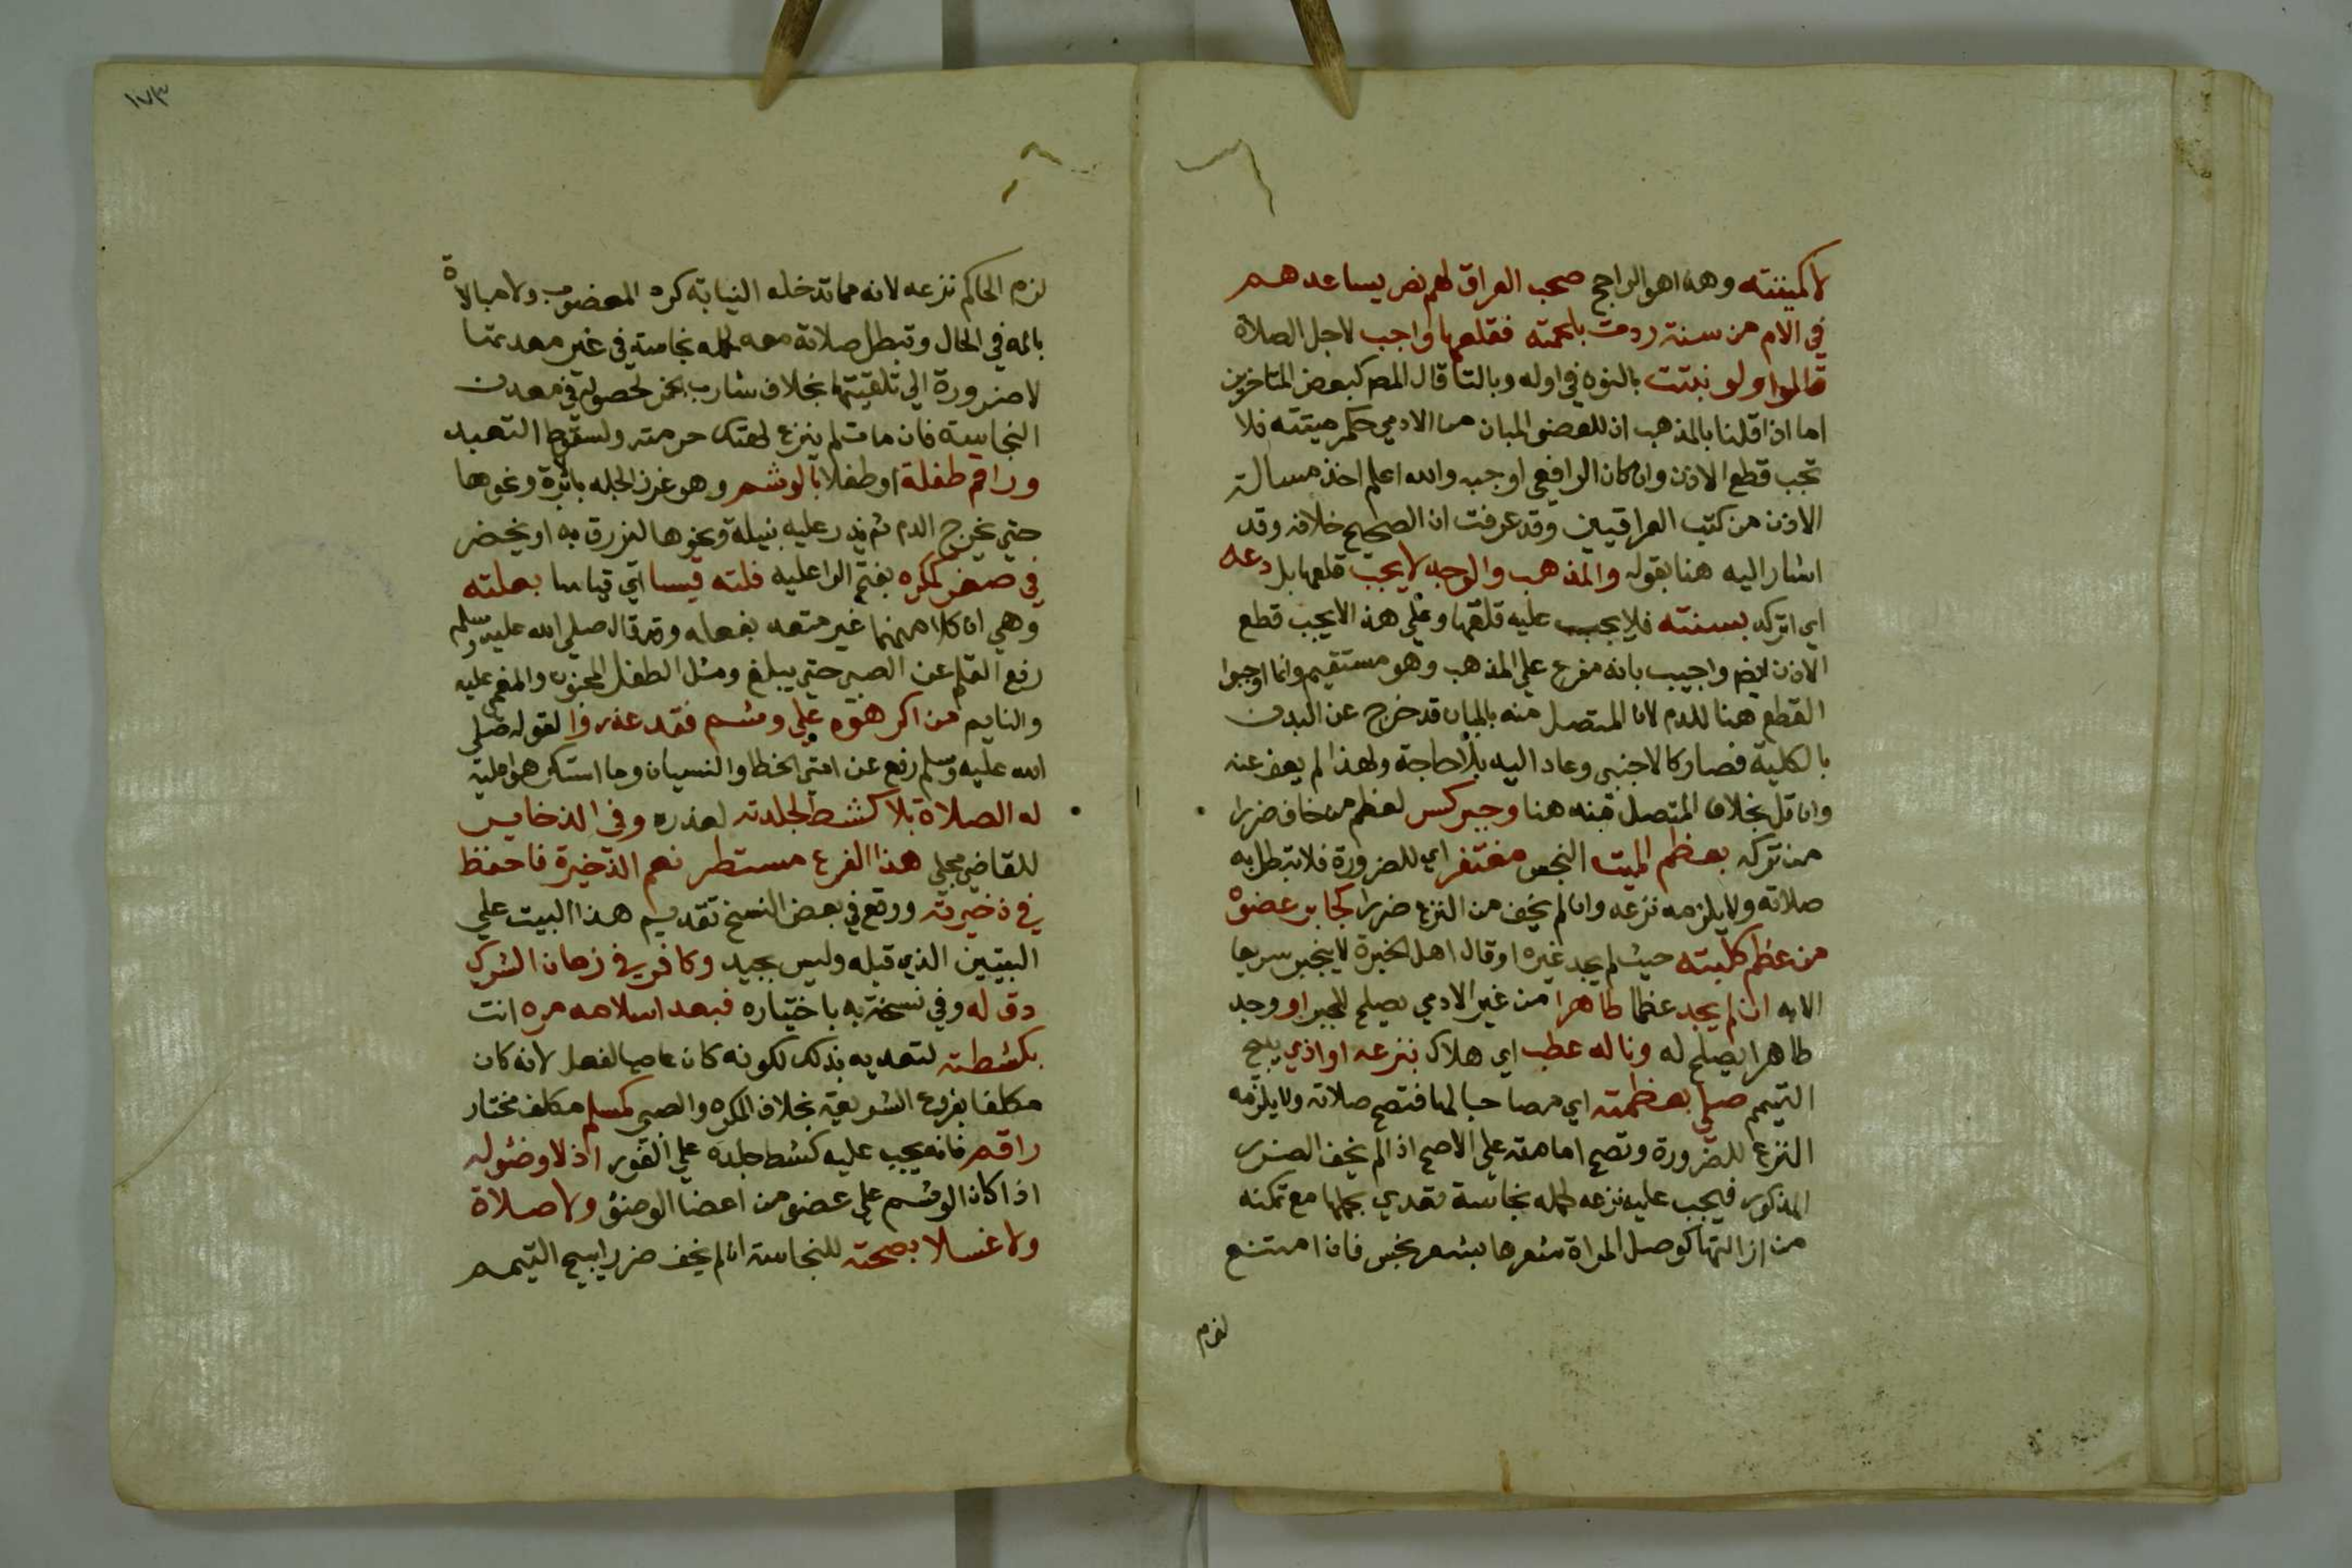 لا كميتته وهذا هو الراجح صحب العراق لهم نص يساعدهم
في الام من سنته ردمت بلحمته فقلعها واجب لاجل الصلاة
قالوا ولو نبتت بالنون في اوله وبالتا قال المص كبعض المتاخرين
اما اذا قلنا بالمذهب ان للعضو المبان من الادمي حكم ميتته فلا
تجب قطع الاذن وان كان الرافعي اوجبه والله اعلم اخذ مسالة
الاذن من كتب العراقيين وقد عرفت ان الصحيح خلافه وقد
اشار اليه هنا بقوله والمذهب والوجه لا يجب قلعها بل دعه
اي اتركه بسنته فلا يجب عليه قلعها وعلي هذا لا يجب قطع
الاذن ايضا واجيب بانه مفرع علي المذهب وهو مستقيم وانما اوجبوا
القطع هنا للدم لان المتصل منه بالمبان قد خرج عن البدن
بالكلية فصار كالاجنبي وعاد اليه بلا حاجة ولهذا لم يعف عنه
وان قل بخلاف المتصل منه هنا وجبر كسر لعظم من خاف ضررا
من تركه بعظم الميت النجس مغتفر اي للضرورة فلا تبطل به
صلاته ولا يلزمه نزعه وان لم يخف من النزع ضررا كجابر عضوه
من عظم كلبته حيث لم يجد غيره او قال اهل الخبرة لا ينجبر سريعا
الا به ان لم يجد عظما طاهرا من غير الادمي يصلح للجبر او وجد
طاهرا يصلح له وناله عطب اي هلاك بنزعه او اذي يبيح
التيمم صلي بعظمته اي مصاحبا لها فتصح صلاته ولا يلزمه
النزع للضرورة وتصح امامته علي الاصح اذا لم يخف الضرر
المذكور فيجب عليه نزعه لحمله نجاسة تعدي بحملها مع تمكنه
من ازالتها كوصل المراة شعرها بشعر نجس فان امتنع
لزم
١٧٣
لزم الحاكم نزعه لانه مما تدخله النيابة كرد المغصوب ولا مبالاة
بالمه في الحال وتبطل صلاته معه لحمله نجاسة في غير معدنها
لا ضرورة الي تلقيتها بخلاف شارب الخمر لحصوله في معدن
النجاسة فان مات لم ينزع لهتك حرمته ولسقوط التعبد
وراقم طفلة او طفلا بالوشم وهو غرز الجلد بابرة ونحوها
حتي يخرج الدم ثم يذر عليه بنيلة ونحوها ليزرق به او يخضر
في صغر كمكره بفتح الرا عليه فلته قيسا اي قياسا بعلته
وهي ان كلا منهما غير متعد بفعله وقد قال صلي الله عليه وسلم
رفع القلم عن الصبي حتي يبلغ ومثل الطفل المجنون والمغمي عليه
والنايم من اكرهوه علي وشم فقد عذروا لقوله صلي
الله عليه وسلم رفع عن امتي الخطا والنسيان وما استكرهوا عليه
له الصلاة بلا كشط لجلدته لعذره وفي الذخاير
للقاضي مجلي هذا الفرع مستطر نعم الذخيرة فاحفظ
في ذخيرته ووقع في بعض النسخ تقديم هذا البيت علي
البيتين الذي قبله وليس بجيد وكافر في زمان الشرك
دق له وفي نسخة به باختياره فبعد اسلامه مره انت
بكشطته لتعديه بذلك لكونه كان عاصيا لفعل لانه كان
مكلفا بفروع الشريعة بخلاف المكره والصبي كمسلم مكلف مختار
راقم فانه يجب عليه كشط جلده علي الفور اذ لا وضو له
اذا كان الوشم علي عضو من اعضا الوضؤ ولا صلاة
ولا غسلا بصحته للنجاسة ان لم يخف ضررا يبيح التيمم